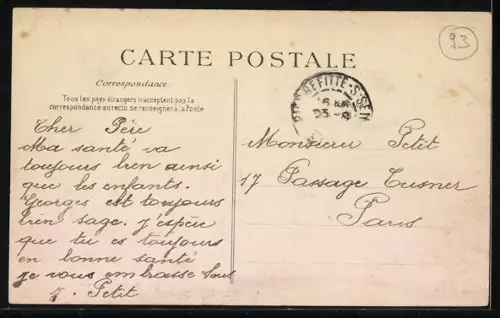 93
CARTE POSTALE
Correspondance
Tous les pays étrangers n'acceptent pas la
correspondance au recto, se renseigner à la Poste
PIERREFITTE-S-SEINE
Cher Père
Ma santé va
toujours bien ainsi
que les enfants.
Georges est toujours
bien sage. j'espère
que tu es toujours
en bonne santé
je vous embrasse tous
Petit
Monsieur Petit
17 Passage
Paris